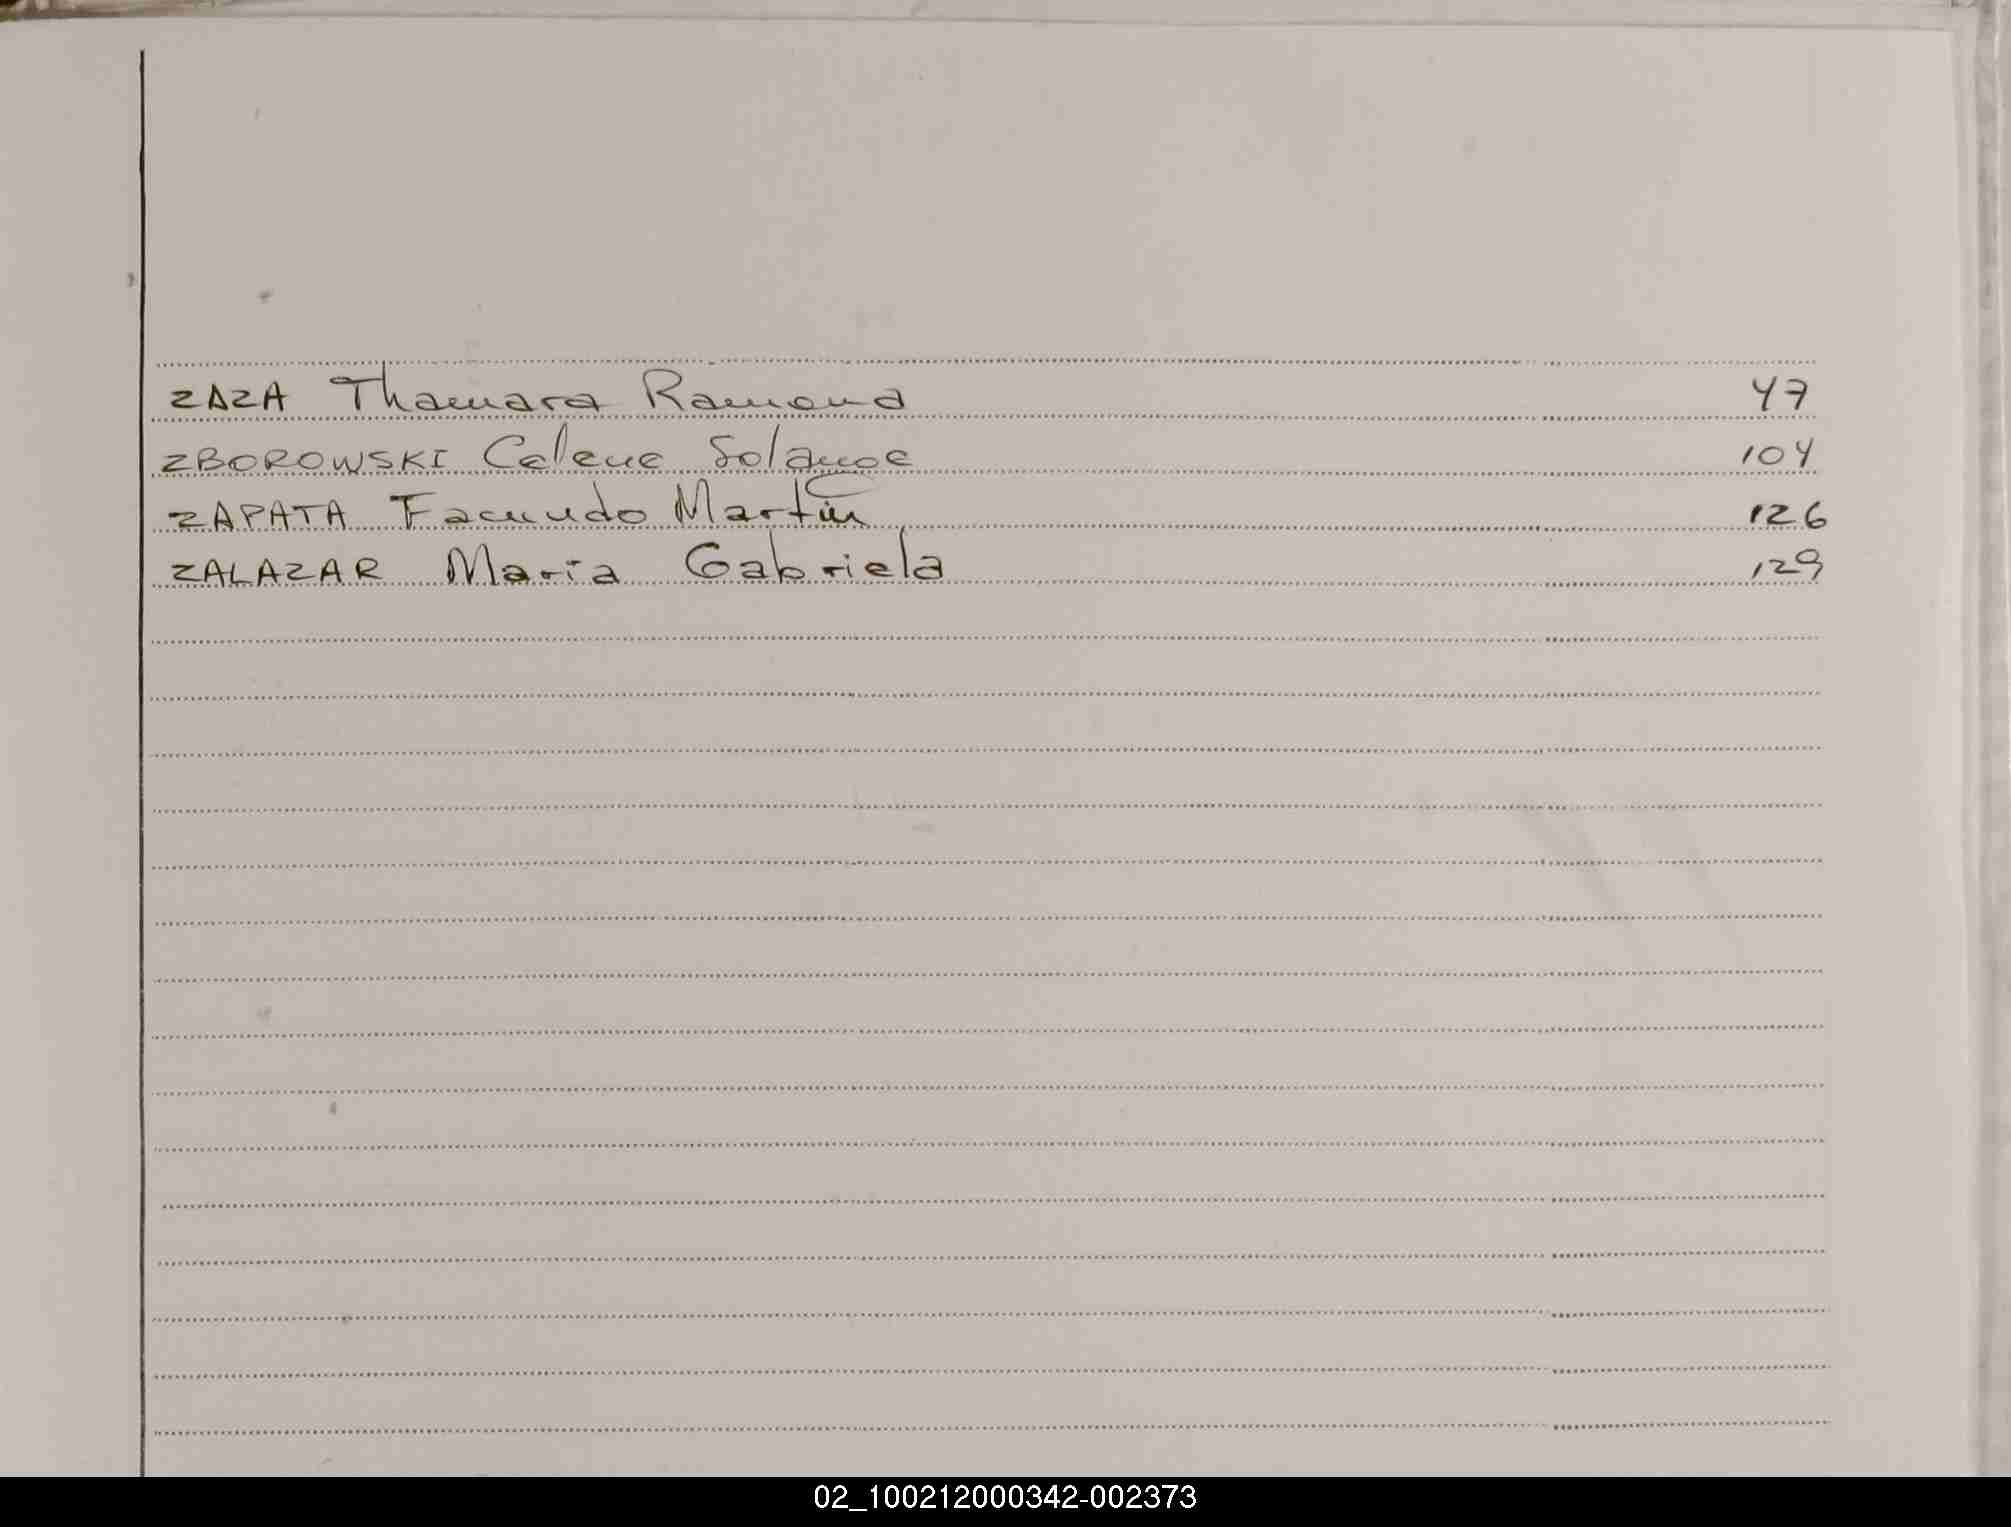 ZAZA Thamara Ramona 47
ZBOROWSKI Celene Solange 104
ZAPATA Facundo Martín 126
ZALAZAR Maria Gabriela 129
02_100212000342-002373